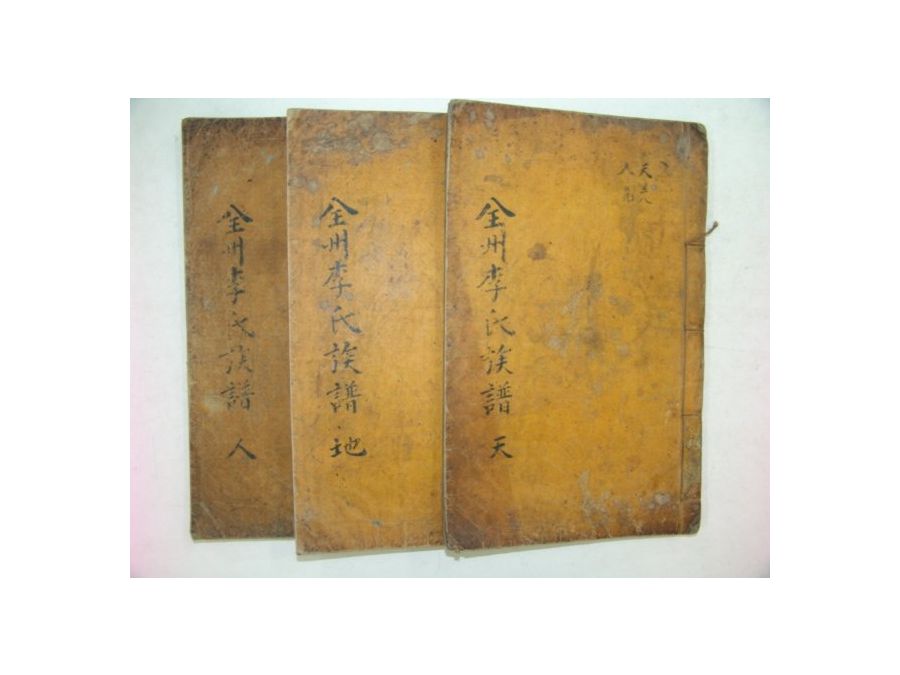 全州李氏族譜 天
全州李氏族譜 地
全州李氏族譜 人